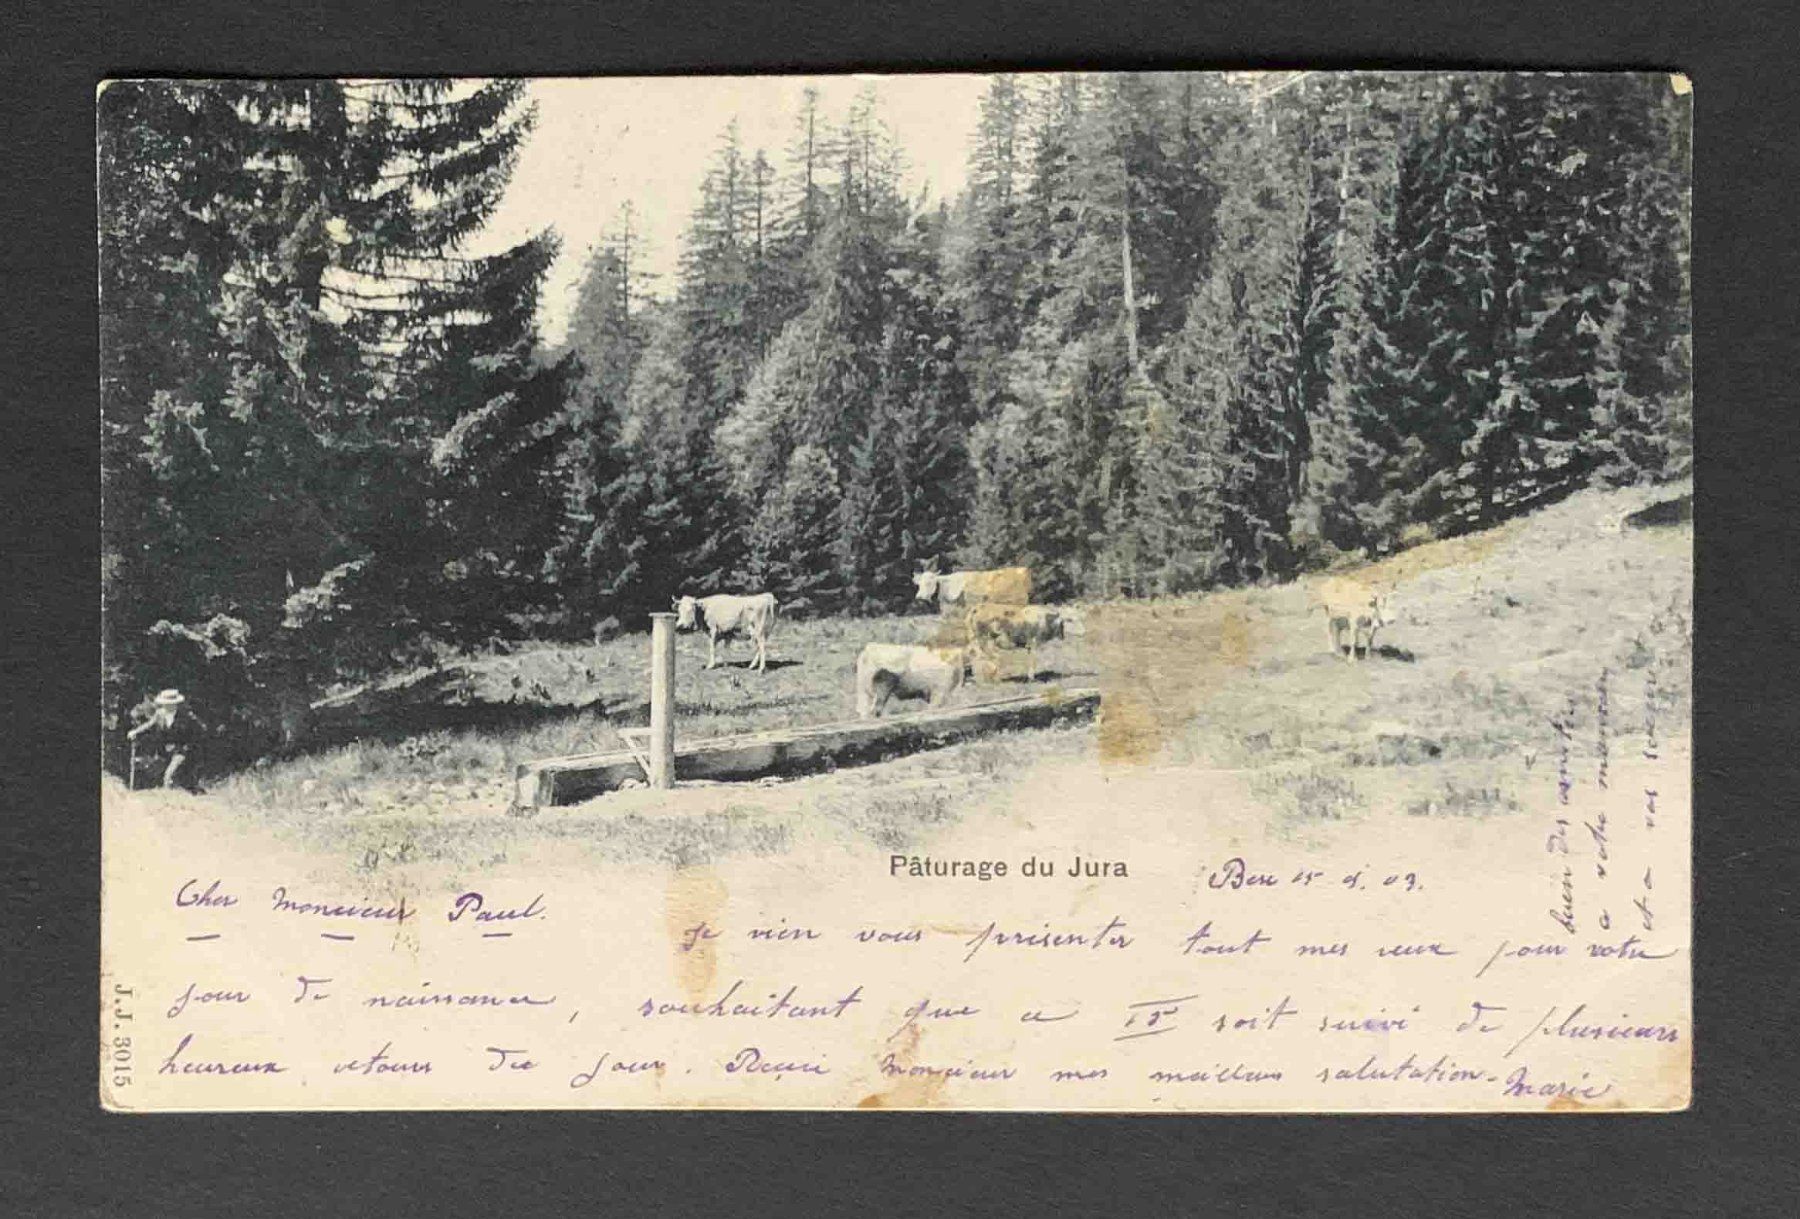 Pâturage du Jura
15 5. 03.
Cher Monsieur Paul.
Je vien vous presenter tout mes veux pour votre
jour de naissance, souhaitant que ce 15 soit suivi de plusieurs
heureux retours du jour. Monsieur mes meilleurs salutation - Marie
bien des amitiés
a votre maman
et a vos soeurs
J.J. 3015